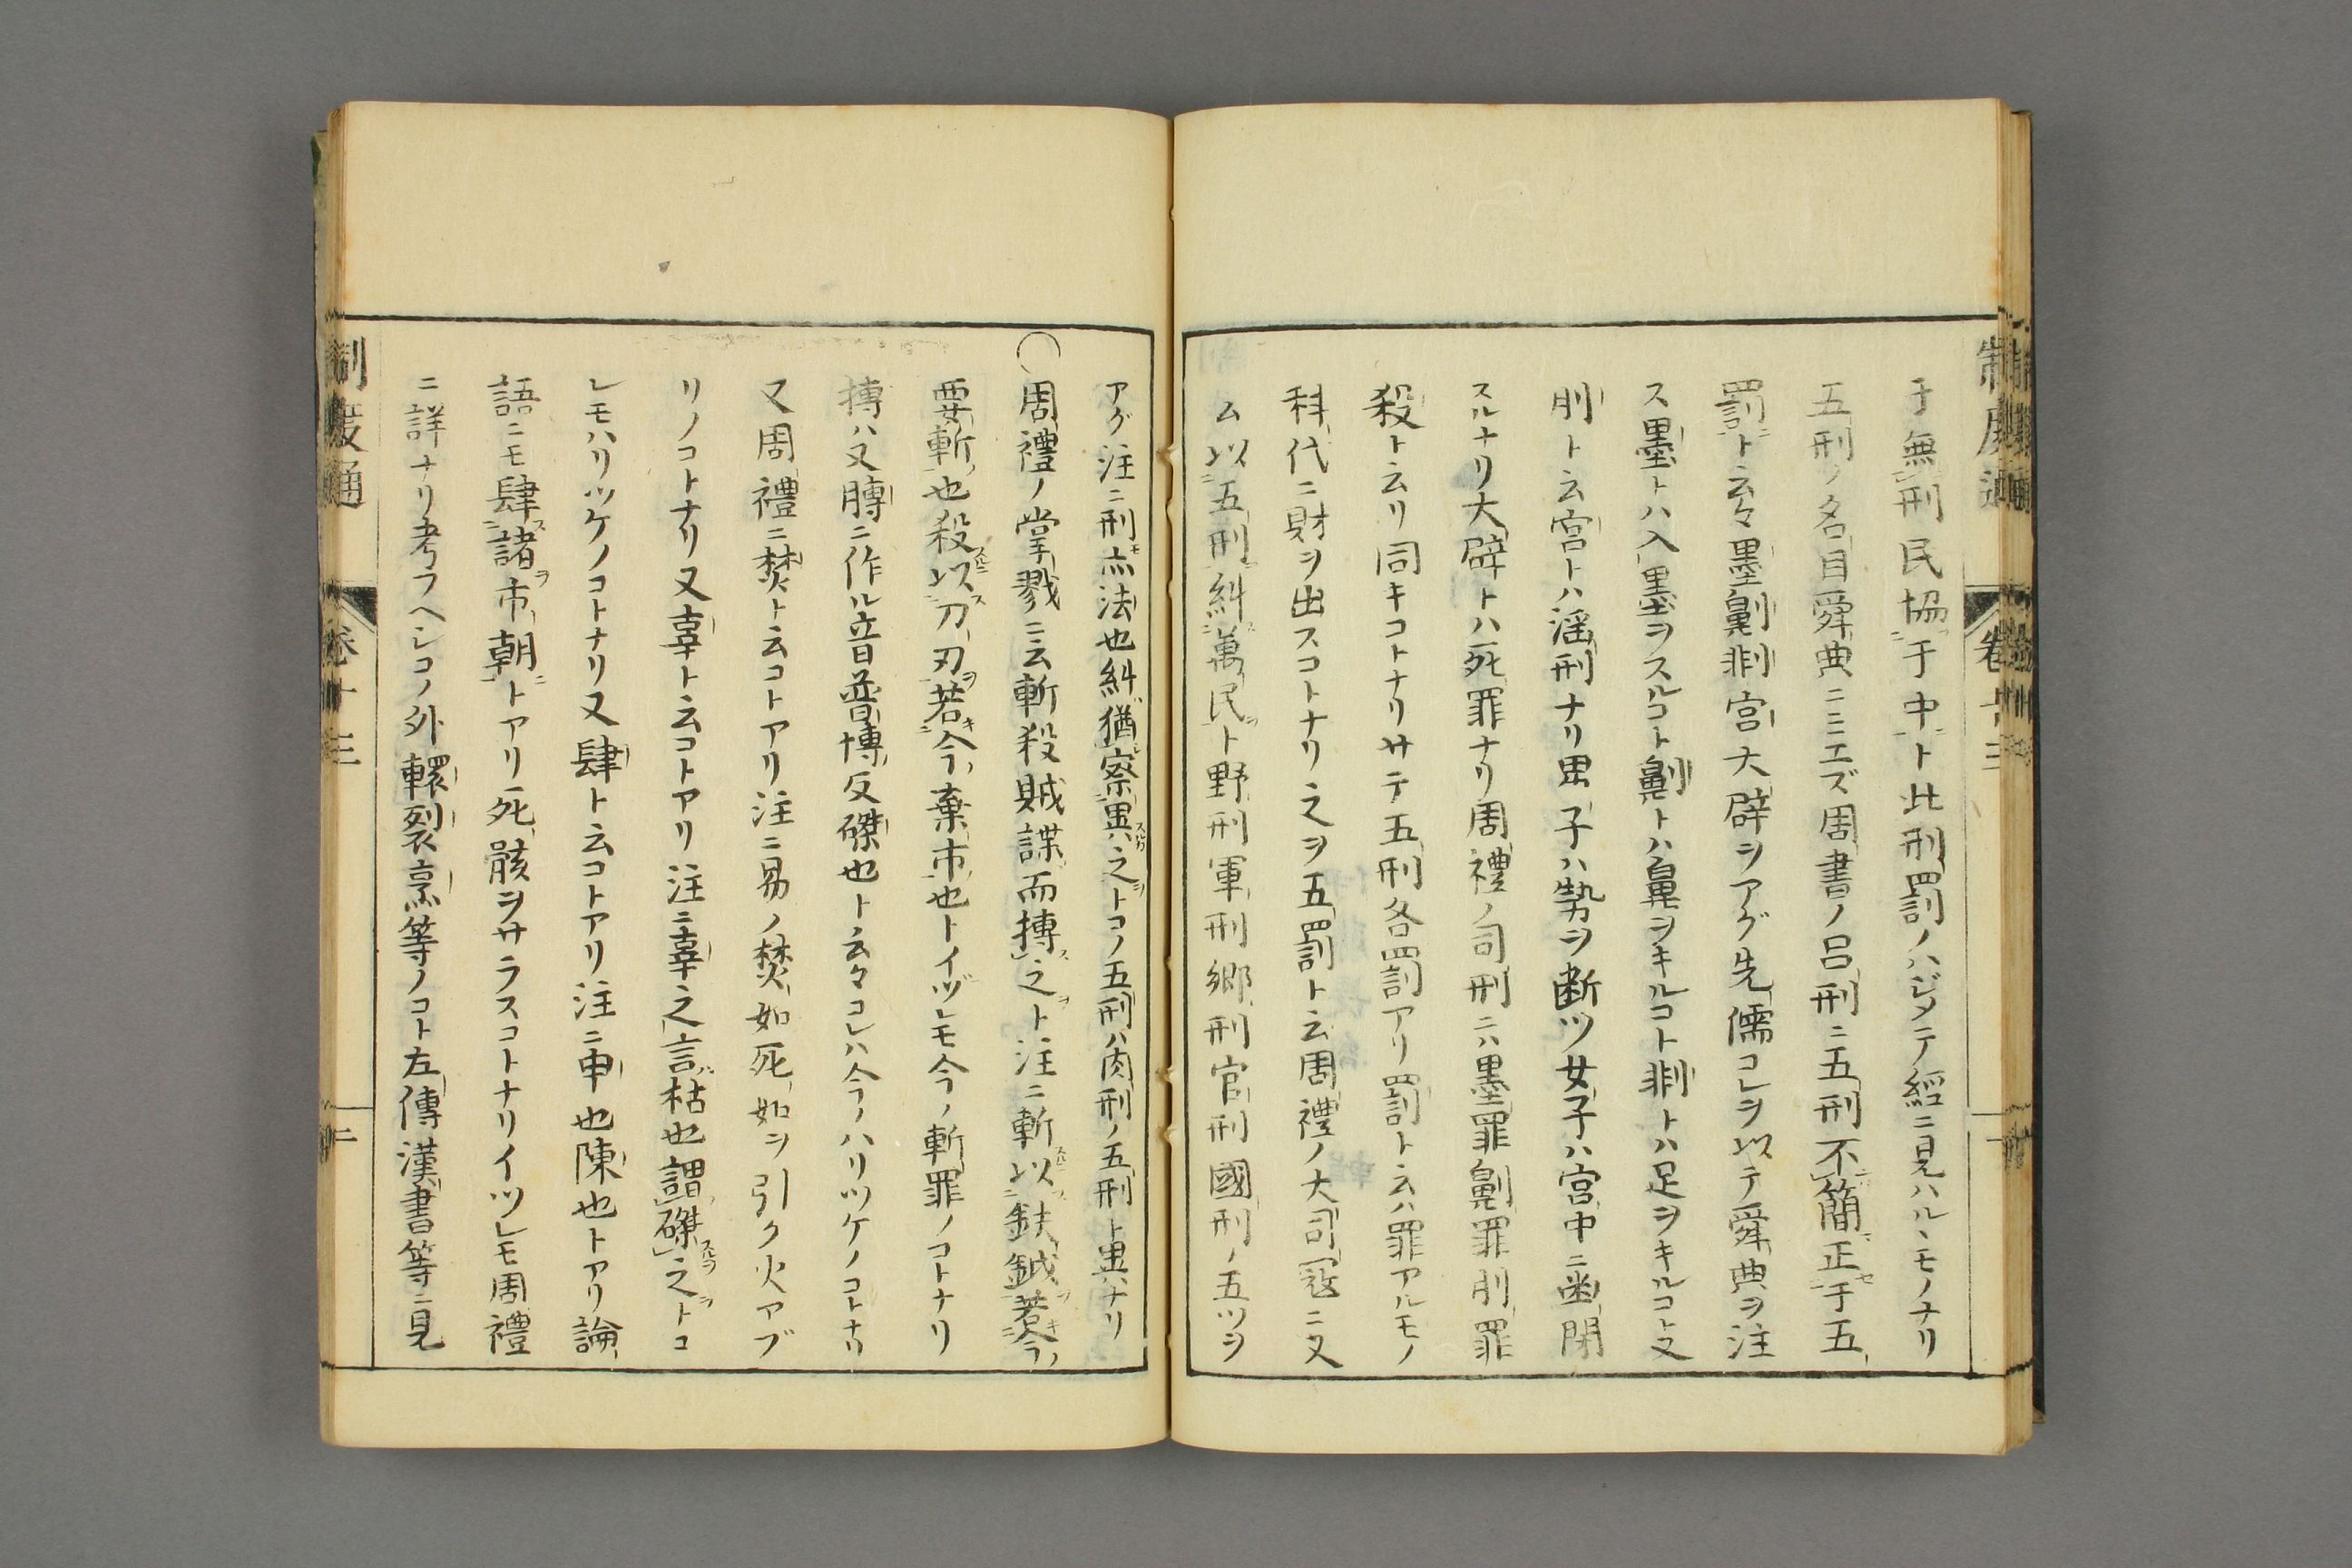 于無刑民協于中ト此刑罰ノハジメテ經ニ見ハルヽモノナリ
五刑ノ名目舜典ニミエズ周書ノ呂刑ニ五刑不簡正于五
罰ト云々墨劓剕宮大辟ヲアグ先儒コレヲ以テ舜典ヲ注
ス墨トハ入墨ヲスルコト劓トハ鼻ヲキルコト剕トハ足ヲキルコト又
刖ト云宮トハ淫刑ナリ男子ハ勢ヲ断ツ女子ハ宮中ニ幽閉
スルナリ大辟トハ死罪ナリ周禮ノ司刑ニハ墨罪劓罪刖罪
殺ト云リ同キコトナリサテ五刑各罰アリ罰ト云ハ罪アルモノ
科代ニ財ヲ出スコトナリ之ヲ五罰ト云周禮ノ大司寇ニ又
云以五刑糾萬民ト野刑軍刑郷刑官刑國刑ノ五ツヲ
アグ注ニ刑亦法也糾猶察異之トコノ五刑ハ肉刑ノ五刑ト異ナリ
○周禮ノ掌戮ニ云斬殺賊諜而搏之ト注ニ斬以鈇鉞若今
要斬也殺以刀刃若今棄市也トイヅレモ今ノ斬罪ノコトナリ
搏ハ又膊ニ作ル音普博反磔也ト云々コレハ今ノハリツケノコトナリ
又周禮ニ焚ト云コトアリ注ニ易ノ焚如死如ヲ引ク火アブ
リノコトナリ又辜ト云コトアリ注ニ辜之言枯也謂磔之トコ
レモハリツケノコトナリ又肆ト云コトアリ注ニ申也陳也トアリ論
語ニモ肆諸市朝トアリ死骸ヲサラスコトナリイヅレモ周禮
ニ詳ナリ考フヘシコノ外轘裂烹等ノコト左傳漢書等ニ見
制度通
卷十三
二